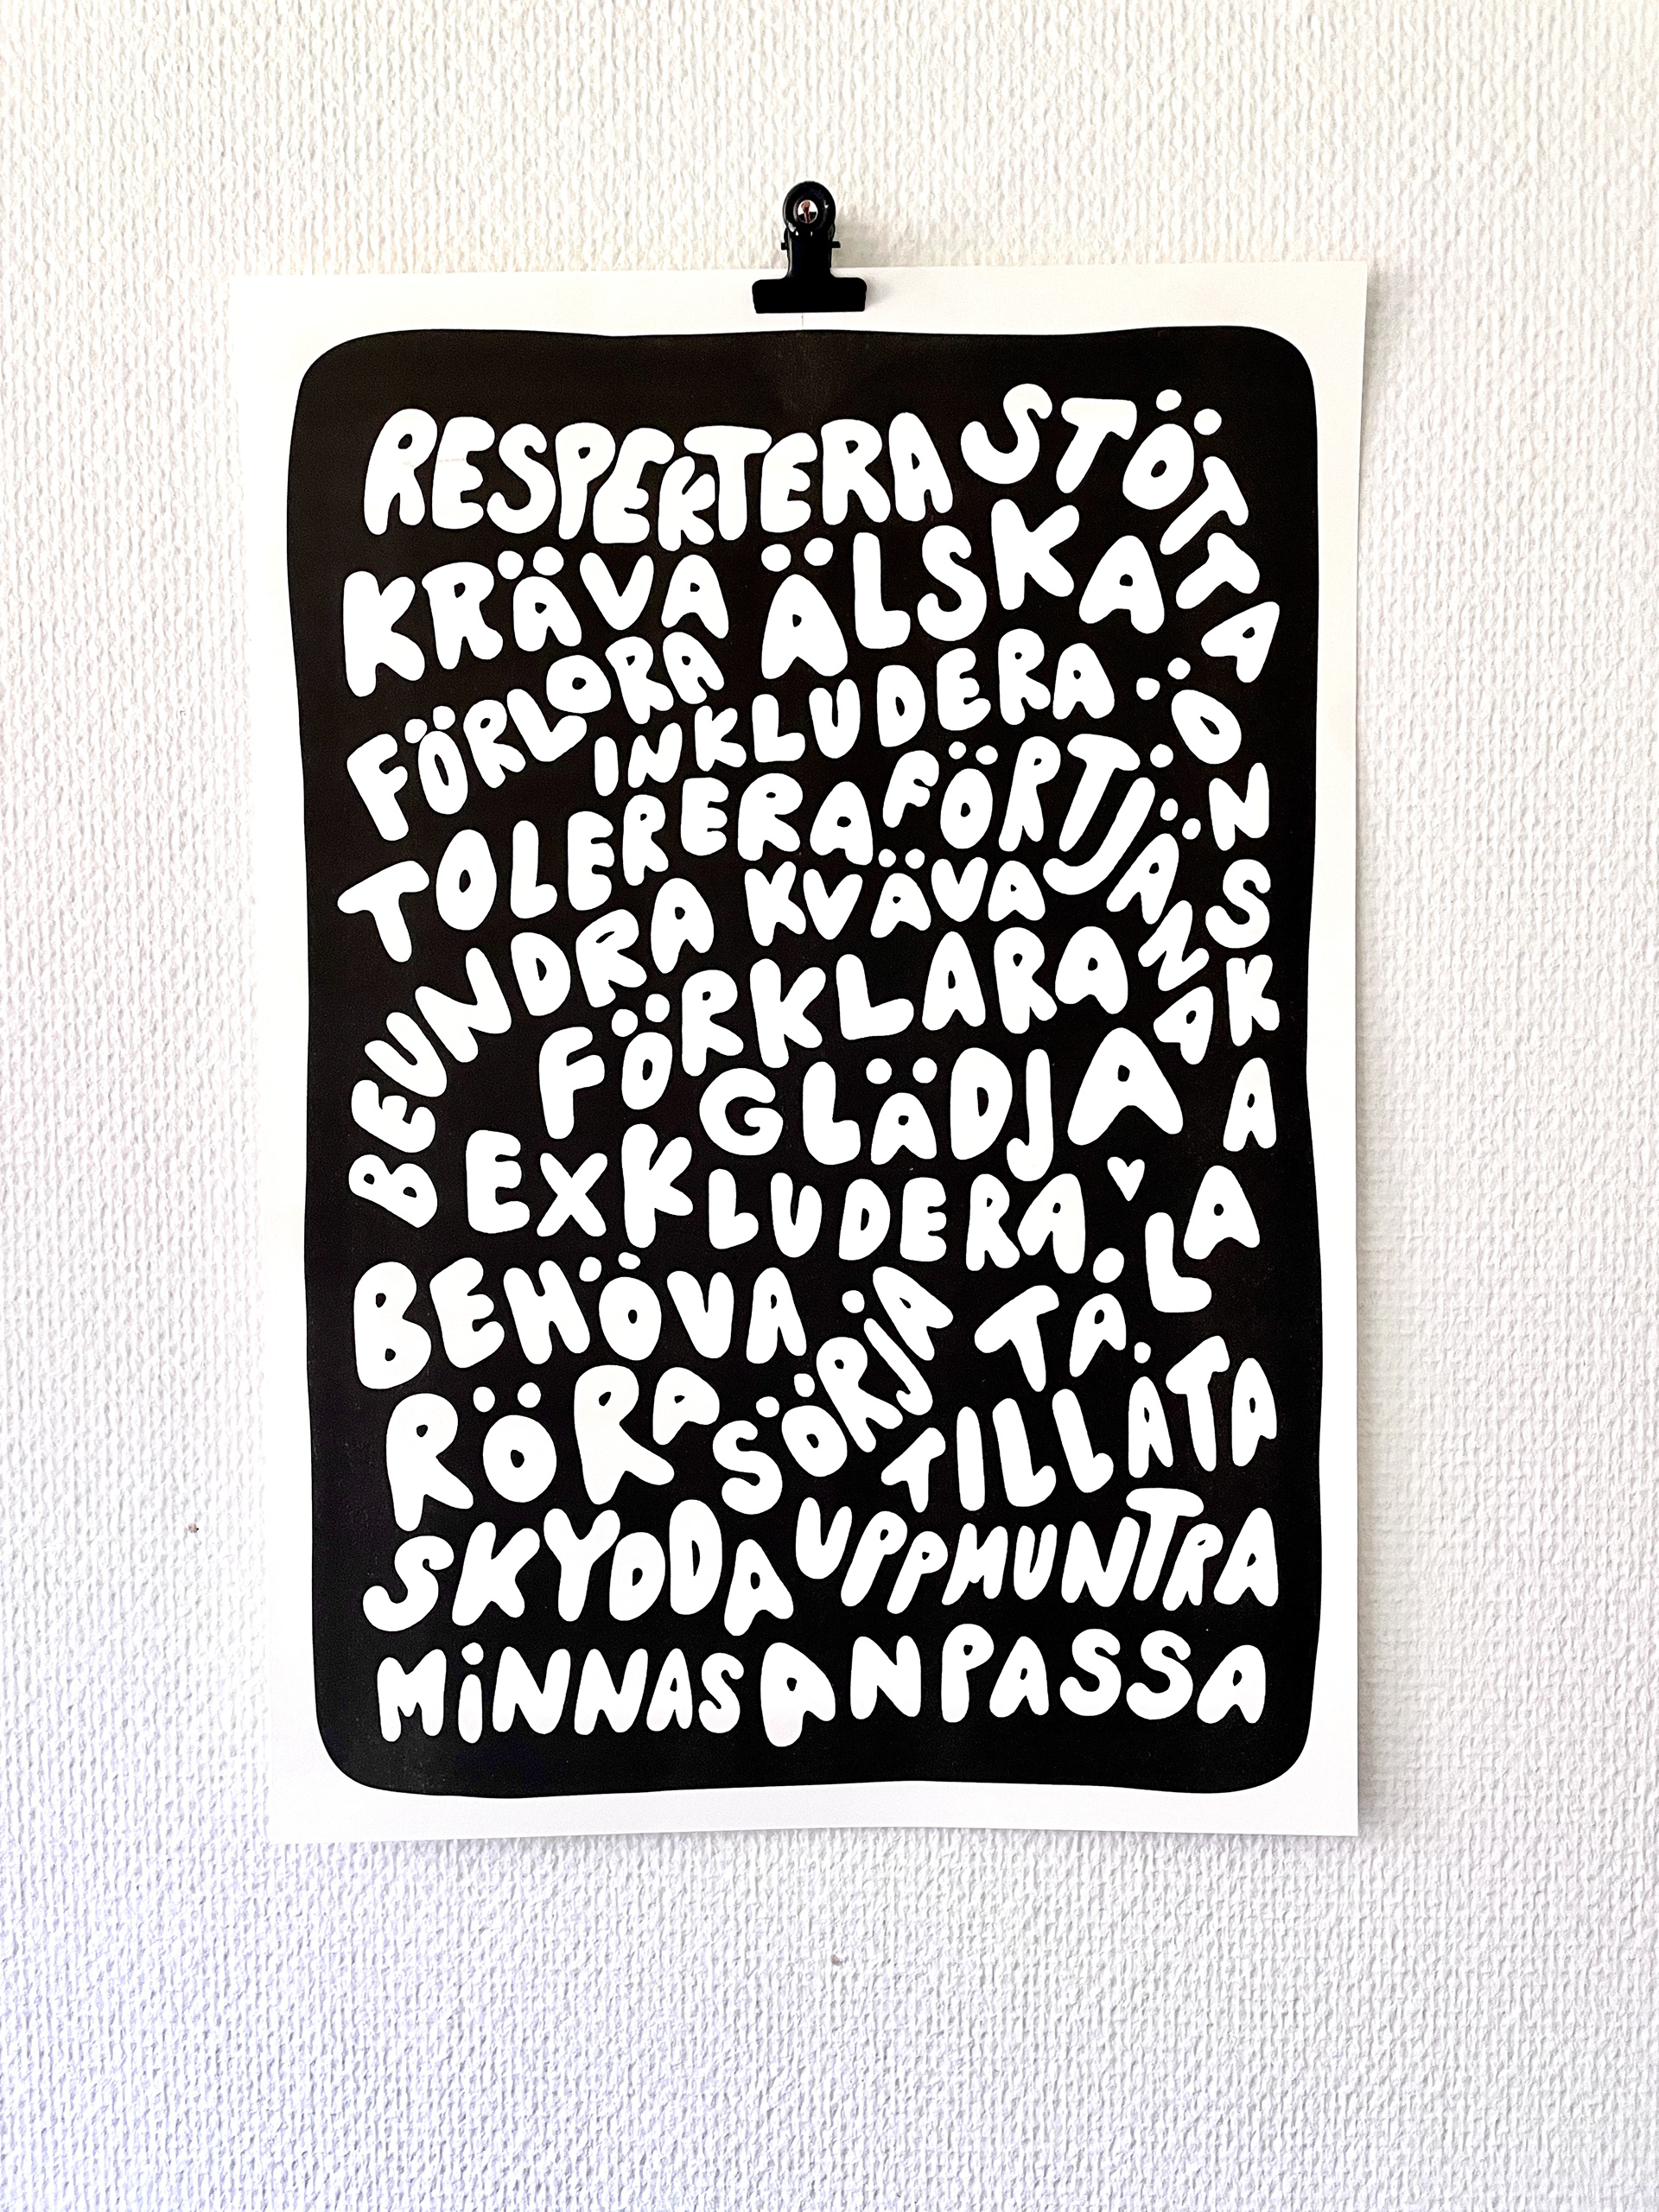 RESPEKTERA STÖTTA
KRÄVA ÄLSKA
FÖRLORA INKLUDERA ÖNSKA
TOLERERA FÖRTJÄNA
BEUNDRA KVÄVA
FÖRKLARA
GLÄDJA
EXKLUDERA
BEHÖVA SÖRJA TÅLA
RÖRA TILLÅTA
SKYDDA UPPMUNTRA
MINNAS ANPASSA